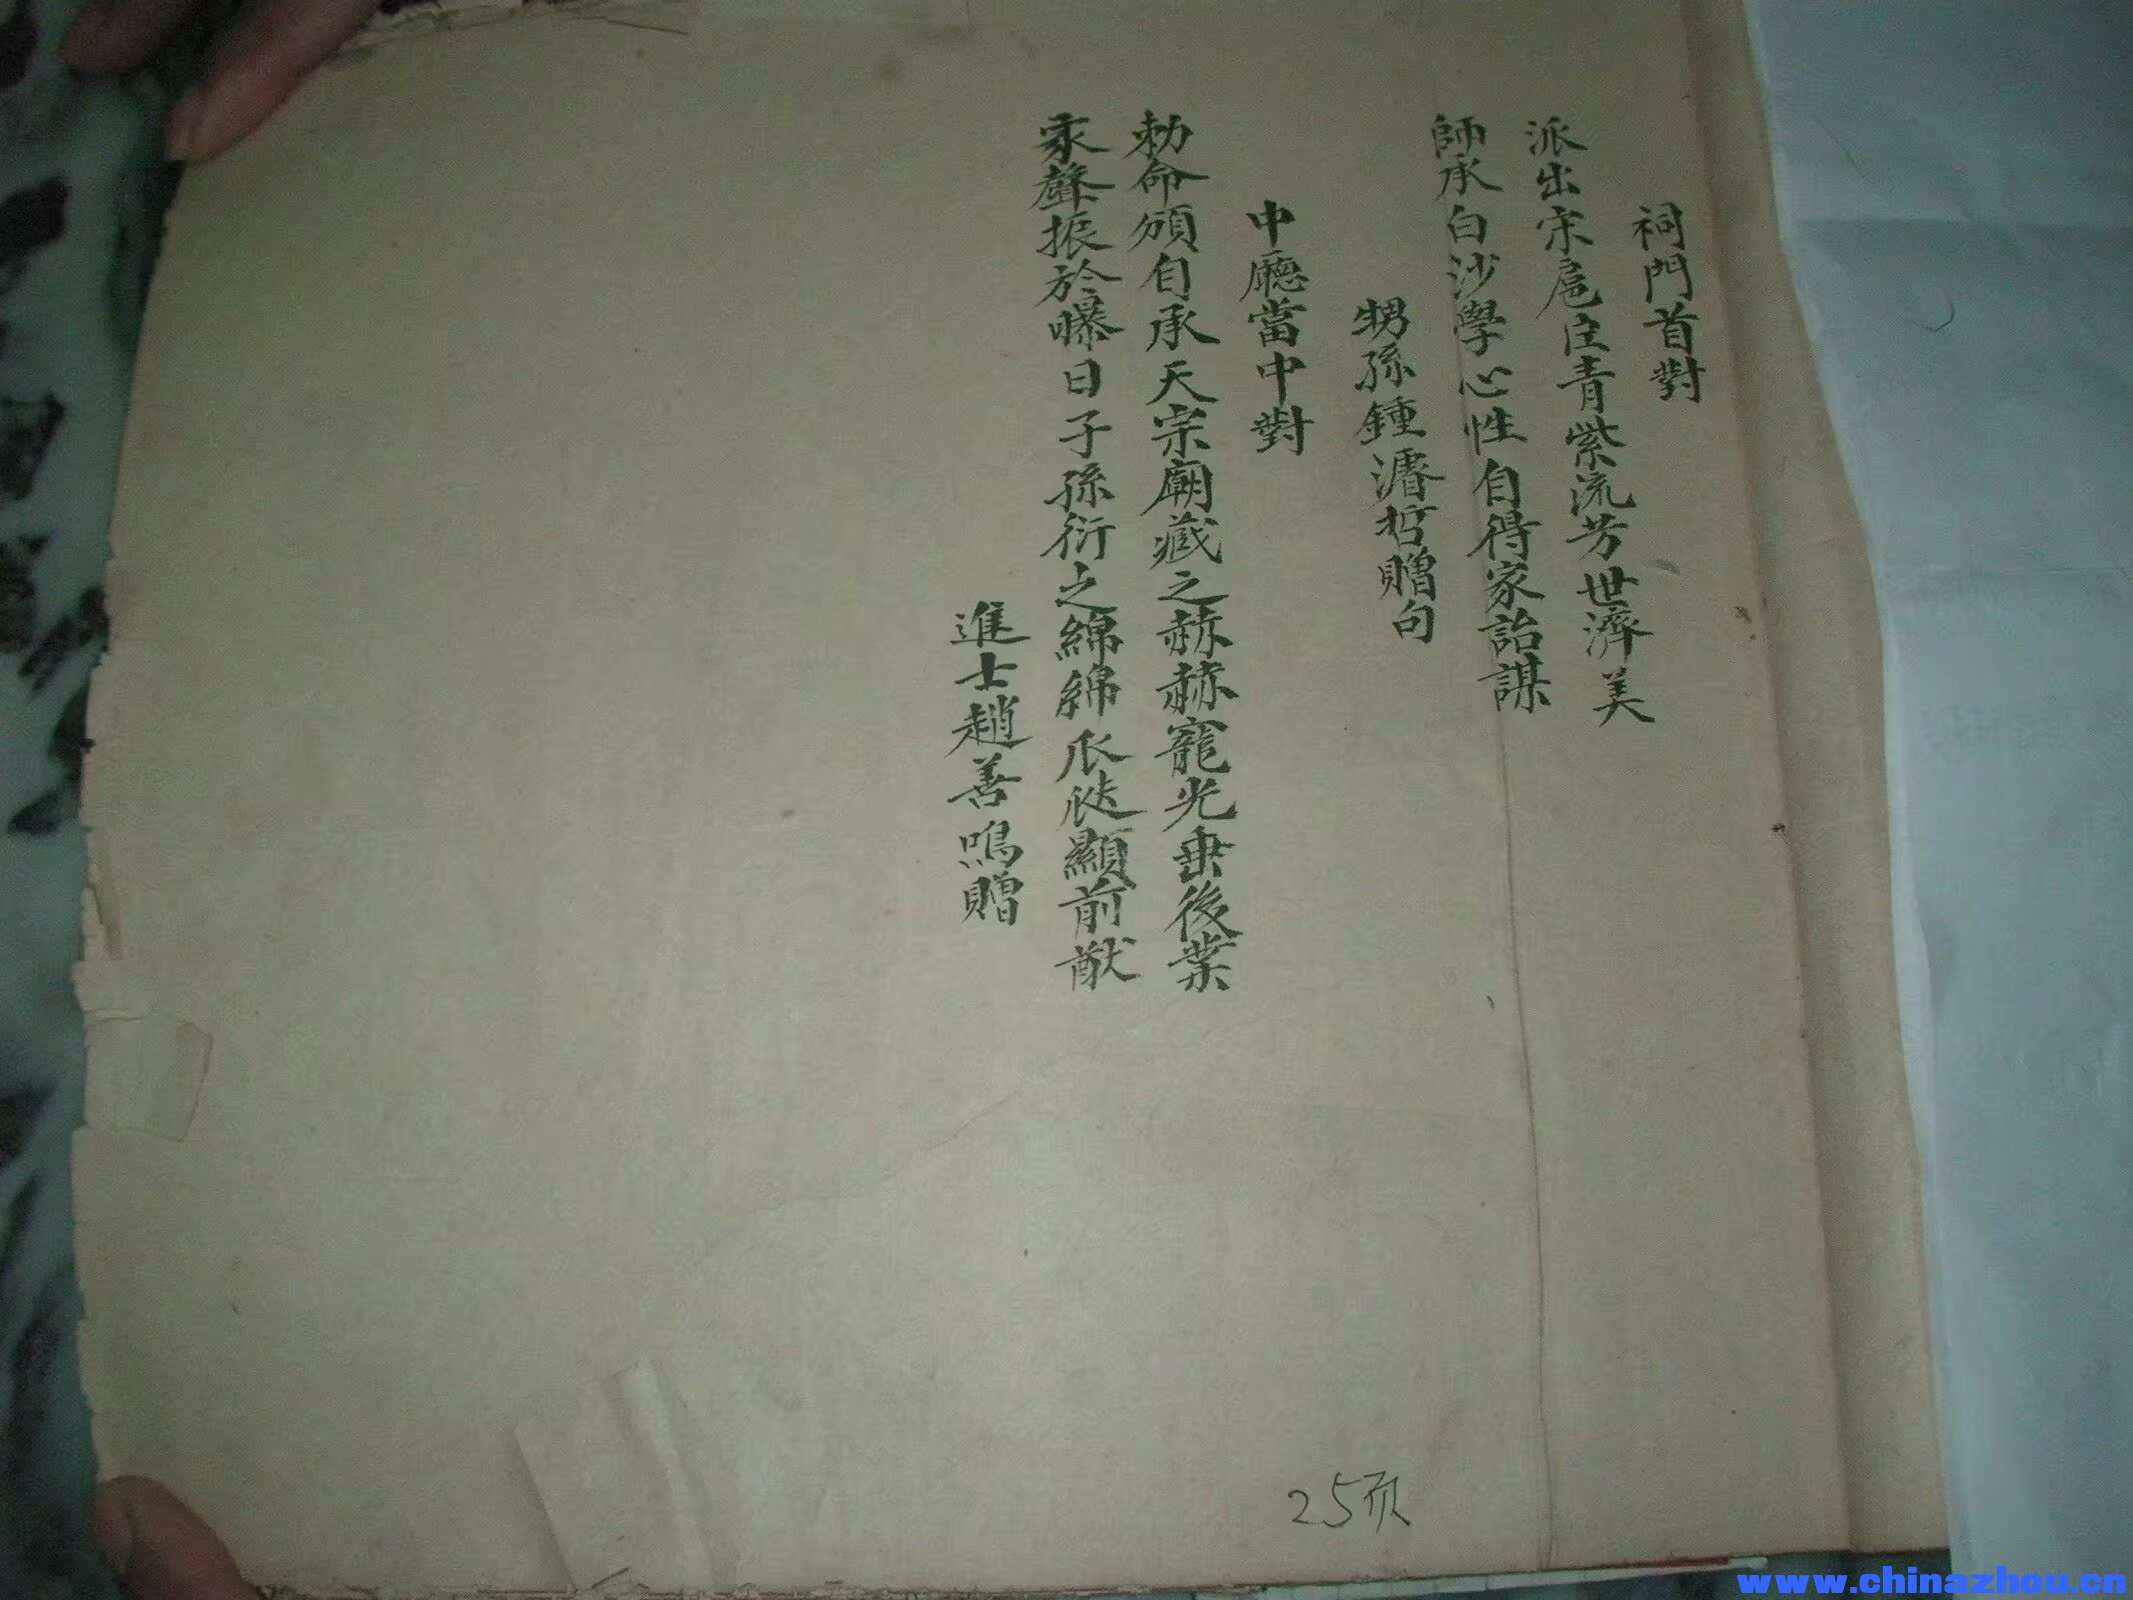 祠門首對
派出宋扈臣青紫流芳世濟美
師承白沙學心性自得家詒謀
甥孫鍾濬哲贈句
中廳當中對
勅命頒自承天宗廟藏之赫赫寵光垂後業
家聲振於曝日子孫衍之綿綿瓜瓞顯前猷
進士趙善鳴贈
25页
www.chinazhou.cn